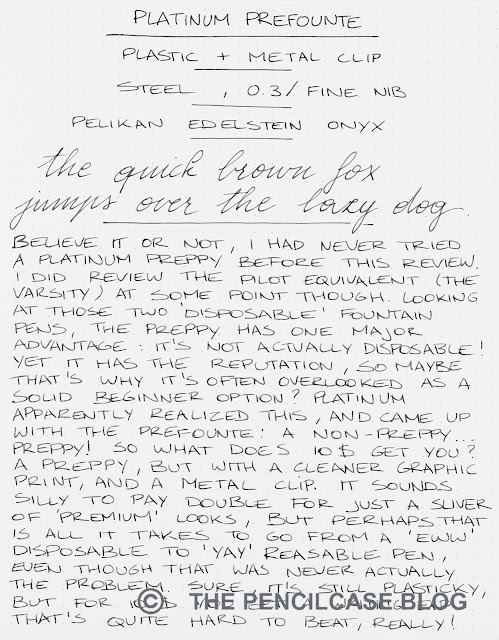 PLATINUM PREFOUNTE
PLASTIC + METAL CLIP
STEEL , 0.3/ FINE NIB
PELIKAN EDELSTEIN ONYX
the quick brown fox
jumps over the lazy dog.
BELIEVE IT OR NOT, I HAD NEVER TRIED
A PLATINUM PREPPY BEFORE THIS REVIEW.
I DID REVIEW THE PILOT EQUIVALENT (THE
VARSITY) AT SOME POINT THOUGH. LOOKING
AT THOSE TWO 'DISPOSABLE' FOUNTAIN
PENS, THE PREPPY HAS ONE MAJOR
ADVANTAGE: IT'S NOT ACTUALLY DISPOSABLE!
YET IT HAS THE REPUTATION, SO MAYBE
THAT'S WHY IT'S OFTEN OVERLOOKED AS A
SOLID BEGINNER OPTION? PLATINUM
APPARENTLY REALIZED THIS, AND CAME UP
WITH THE PREFOUNTE: A NON-PREPPY...
PREPPY! SO WHAT DOES 10$ GET YOU?
A PREPPY, BUT WITH A CLEANER GRAPHIC
PRINT, AND A METAL CLIP. IT SOUNDS
SILLY TO PAY DOUBLE FOR JUST A SLIVER
OF 'PREMIUM' LOOKS, BUT PERHAPS THAT
IS ALL IT TAKES TO GO FROM A 'EWW'
DISPOSABLE TO 'YAY' REASABLE PEN,
EVEN THOUGH THAT WAS NEVER ACTUALLY
THE PROBLEM. SURE IT'S STILL PLASTICKY,
BUT FOR
© THE PENCILCASE BLOG
THAT'S QUITE HARD TO BEAT, REALLY!